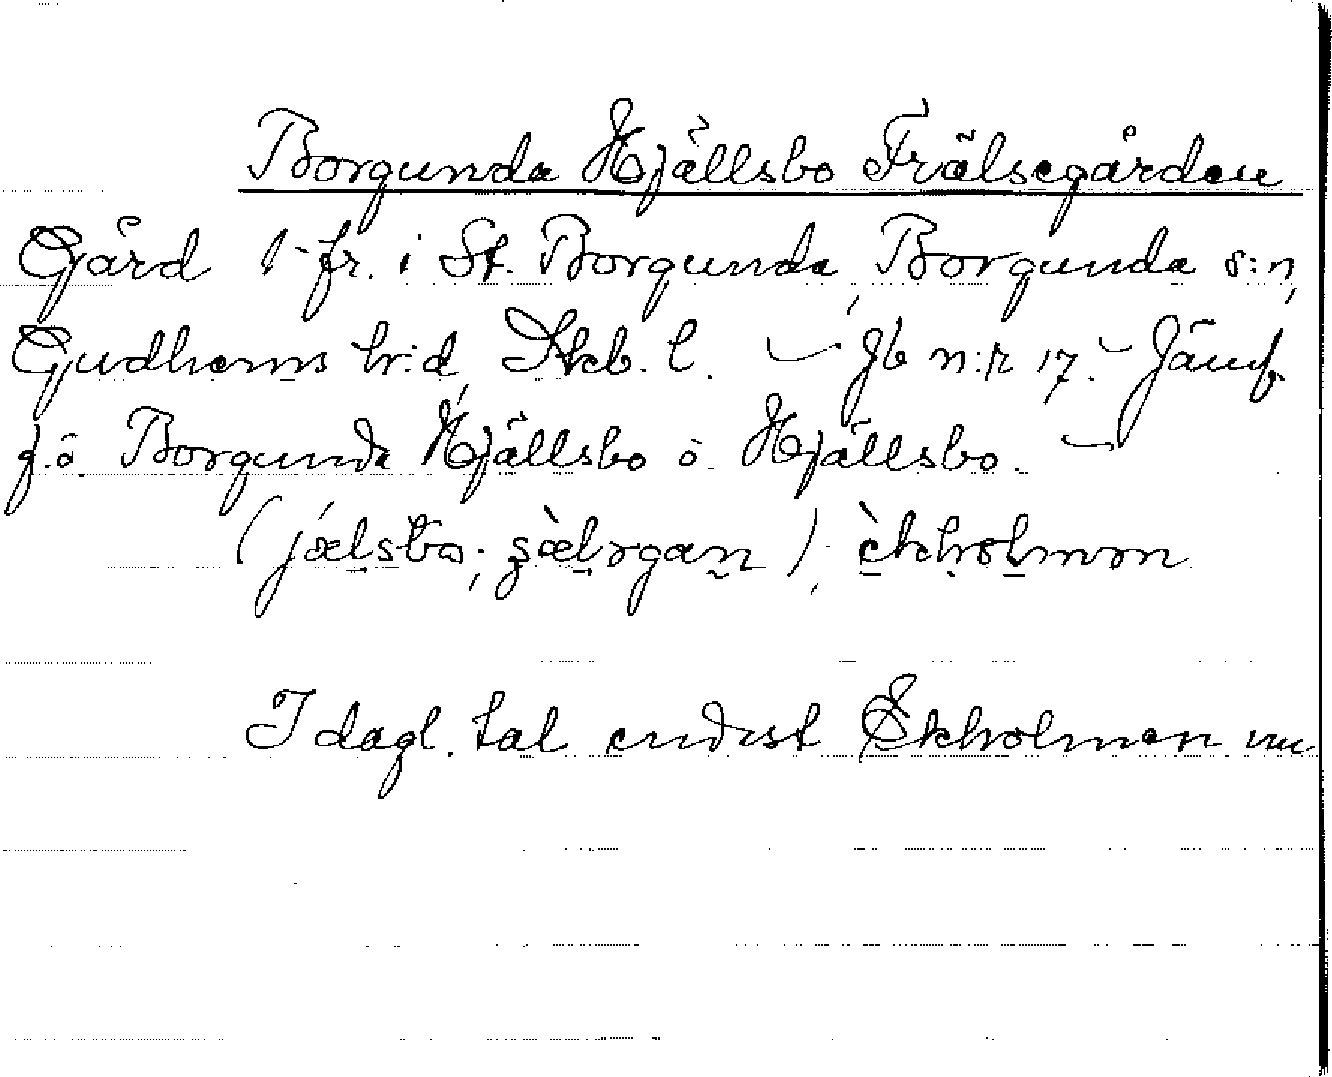 Borgunda Hjällsbo Frälsegården
Gård 1 fr. i St. Borgunda, Borgunda s:n,
Gudhems hr:d, Skb. l. – Jb n:r 17. – Jämf.
g.ö. Borgunda Hjällsbo ö. Hjällsbo. –
(jælsbo; sælrgan), èkholmən
I dagl. tal endast Ekholmen nu